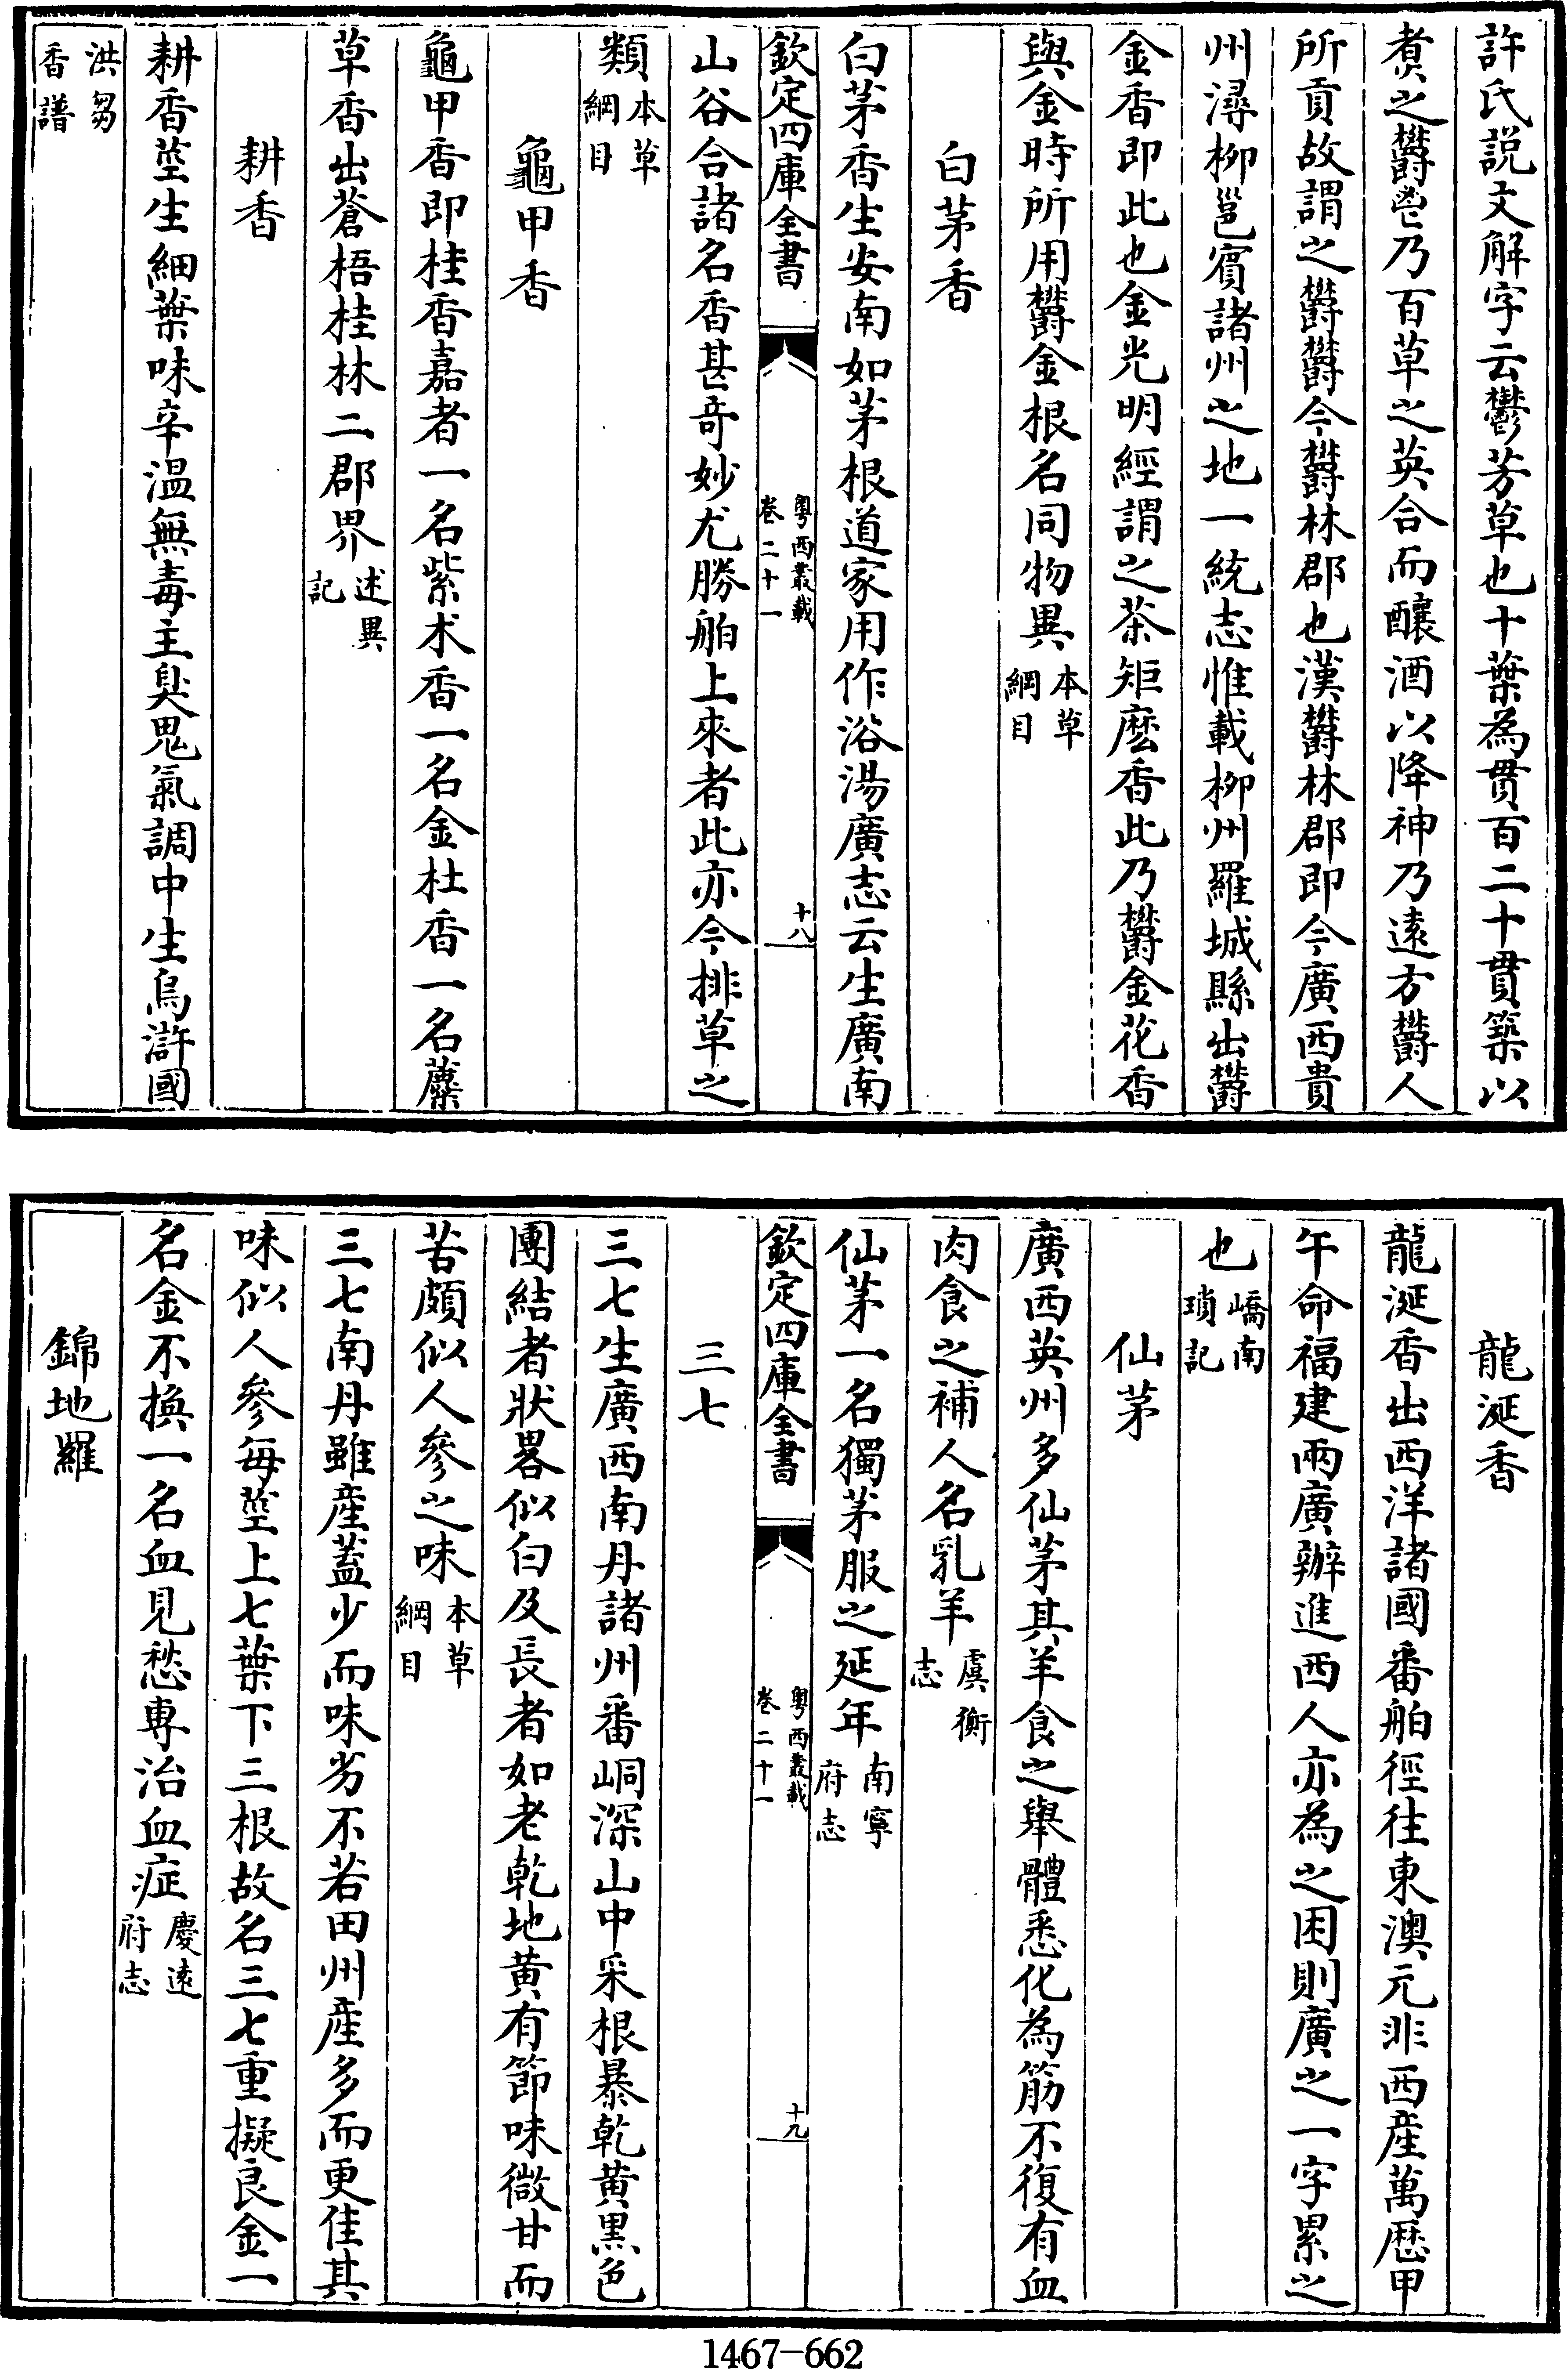 許氏説文解字云鬱芳草也十葉為貫百二十貫築以
煑之欎鬯乃百草之英合而釀酒以降神乃遠方欎人
所貢故謂之欎欎今欎林郡也漢欎林郡即今廣西貴
州潯柳邕賔諸州之地一統志惟載柳州羅城縣出欎
金香即此也金光明經謂之茶矩麽香此乃欎金花香
與金時所用欎金根名同物異本草綱目
白茅香
白茅香生安南如茅根道家用作浴湯廣志云生廣南
欽定四庫全書 粤西叢載卷二十一 十八
山谷合諸名香甚奇妙尤勝舶上來者此亦今排草之
類本草綱目
龜甲香
龜甲香即桂香嘉者一名紫术香一名金杜香一名麋
草香出蒼梧桂林二郡界述異記
耕香
耕香莖生細葉味辛温無毒主臭鬼氣調中生烏滸國
洪芻香譜
龍涎香
龍涎香出西洋諸國番舶徑往東澳元非西産萬厯甲
午命福建兩廣辦進西人亦為之困則廣之一字累之
也嶠南瑣記
仙茅
廣西英州多仙茅其羊食之舉體悉化為筋不復有血
肉食之補人名乳羊虞衡志
仙茅一名獨茅服之延年南寧府志
欽定四庫全書 粤西叢載卷二十一 十九
三七
三七生廣西南丹諸州番峒深山中采根暴乾黄黒色
團結者狀畧似白及長者如老乾地黄有節味微甘而
苦頗似人參之味本草綱目
三七南丹雖産葢少而味劣不若田州産多而更佳其
味似人參每莖上七葉下三根故名三七重擬良金一
名金不換一名血見愁專治血症慶逺府志
錦地羅
1467-662